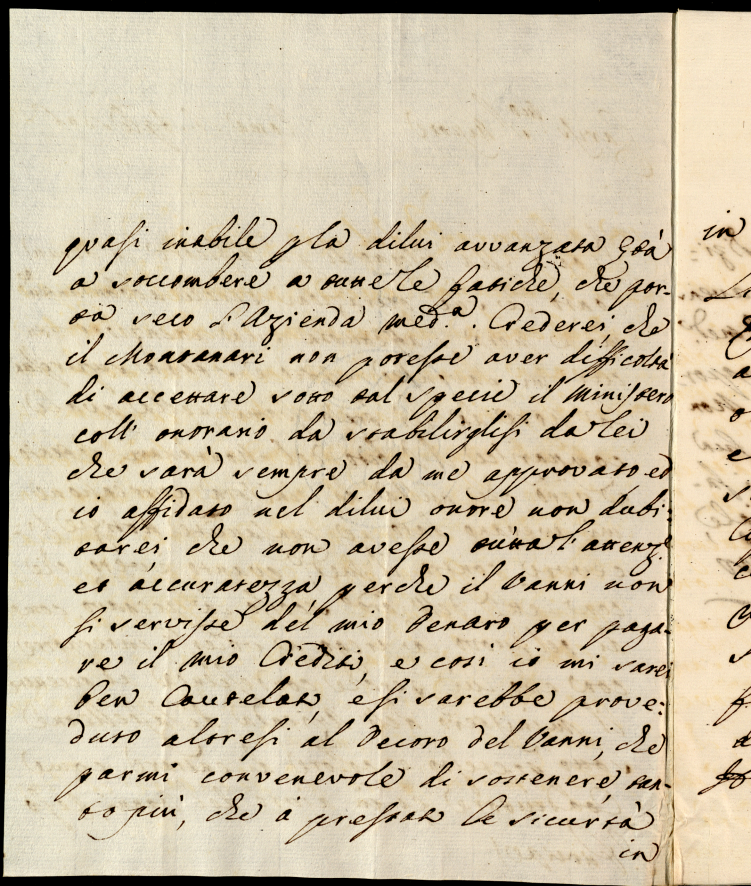 quasi inabile p la dilui avvanzata Età
a soccombere a tutte le fatiche, che por-
ta seco l'Azienda med.ª. Crederei, che
il Montanari non potesse aver difficoltà
di accettare sotto tal specie il Ministero
coll' onorario da stabilirglisi da lei
che sarà sempre da me approvato ed
io affidato nel dilui onore non dubi:
tarei che non avesse tutta l'attenz.e
et accuratezza perche il Vanni non
si servisse del mio Denaro per paga-
re il mio Credito, e così io mi sarei
ben Cautelato, e si sarebbe prove:
duto altresi al Decoro del Vanni, che
parmi convenevole di sostenere, tan-
to più, che à prestato la sicurtà
in
in